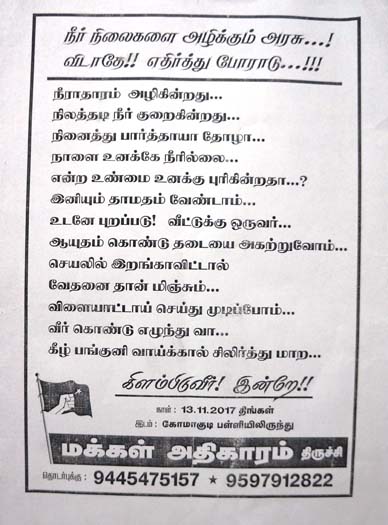 நீர் நிலைகளை அழிக்கும் அரசு...!
விடாதே!! எதிர்த்து போராடு...!!!
நீராதாரம் அழிகின்றது...
நிலத்தடி நீர் குறைகின்றது...
நினைத்து பார்த்தாயா தோழா...
நாளை உனக்கே நீரில்லை...
என்ற உண்மை உனக்கு புரிகின்றதா...?
இனியும் தாமதம் வேண்டாம்...
உடனே புறப்படு! வீட்டுக்கு ஒருவர்...
ஆயுதம் கொண்டு தடையை அகற்றுவோம்...
செயலில் இறங்காவிட்டால்
வேதனை தான் மிஞ்சும்...
விளையாட்டாய் செய்து முடிப்போம்...
வீர் கொண்டு எழுந்து வா...
கீழ் பங்குனி வாய்க்கால் சிலிர்த்து மாற...
கிளம்புவீர்! இன்றே!!
நாள் : 13.11.2017 திங்கள்
இடம் : கோமாகுடி பள்ளியிலிருந்து
மக்கள் அதிகாரம் திருச்சி
தொடர்புக்கு : 9445475157 ★ 9597912822